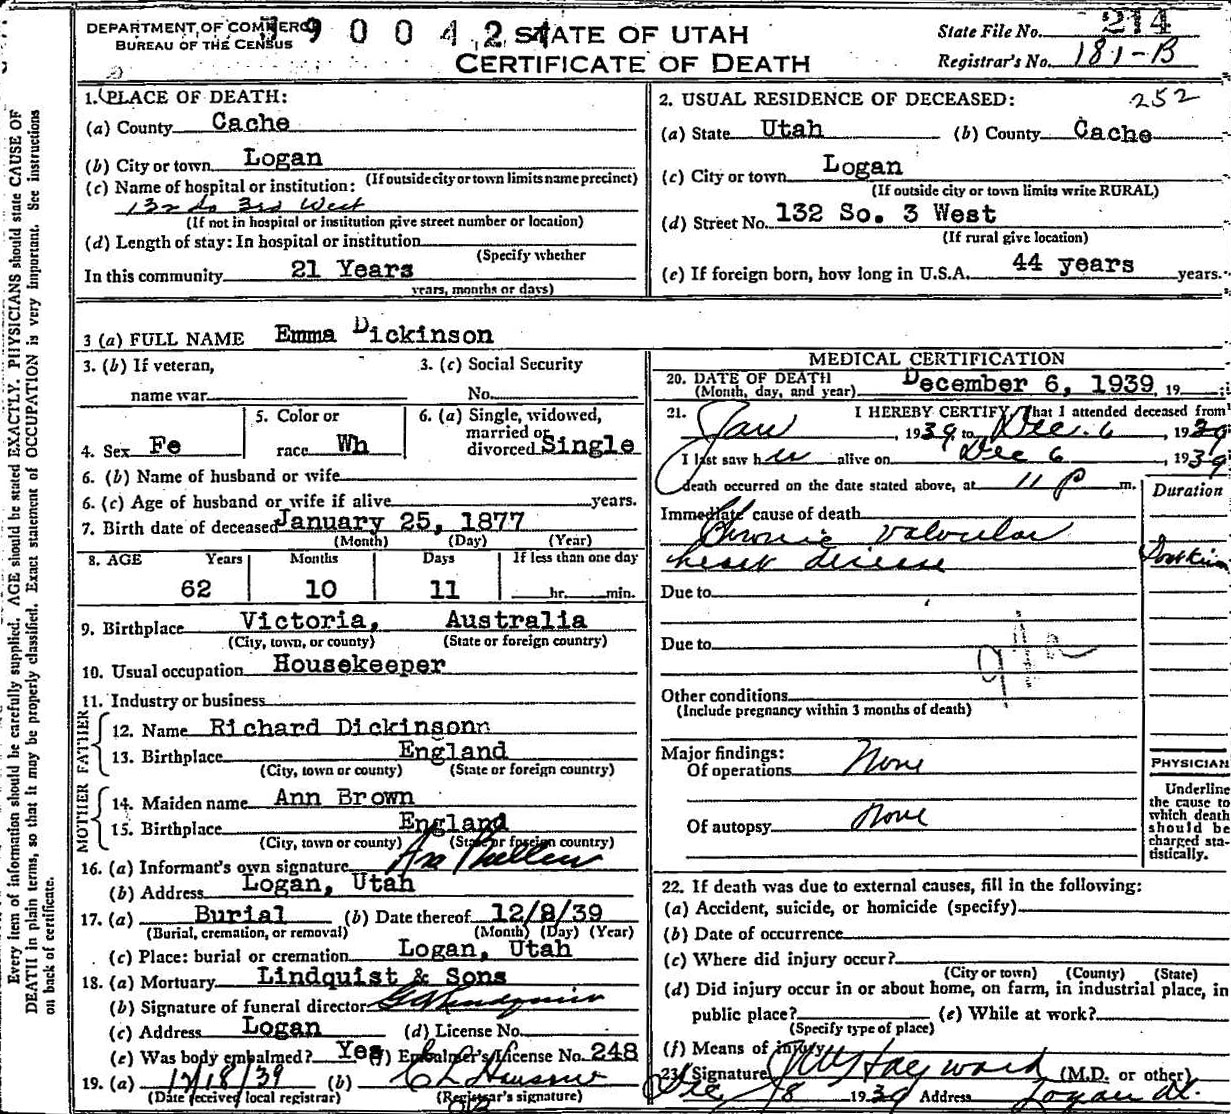 DEPARTMENT OF COMMERCE
BUREAU OF THE CENSUS
STATE OF UTAH
CERTIFICATE OF DEATH
State File No. 214
Registrar's No. 181-B
1. PLACE OF DEATH:
(a) County Cache
(b) City or town Logan
(If outside city or town limits name precinct)
(c) Name of hospital or institution:
132 So 3rd West
(If not in hospital or institution give street number or location)
(d) Length of stay: In hospital or institution
(Specify whether
In this community 21 Years
years, months or days)
2. USUAL RESIDENCE OF DECEASED: 252
(a) State Utah (b) County Cache
(c) City or town Logan
(If outside city or town limits write RURAL)
(d) Street No. 132 So. 3 West
(If rural give location)
(e) If foreign born, how long in U.S.A. 44 years years.
3 (a) FULL NAME Emma Dickinson
3. (b) If veteran,
name war
3. (c) Social Security
No.
4. Sex Fe
5. Color or
race Wh
6. (a) Single, widowed,
married or
divorced Single
6. (b) Name of husband or wife
6. (c) Age of husband or wife if alive years.
7. Birth date of deceased January 25, 1877
(Month) (Day) (Year)
8. AGE Years Months Days If less than one day
62 10 11 hr. min.
9. Birthplace Victoria, Australia
(City, town, or county) (State or foreign country)
10. Usual occupation Housekeeper
11. Industry or business
FATHER
12. Name Richard Dickinsonn
13. Birthplace England
(City, town or county) (State or foreign country)
MOTHER
14. Maiden name Ann Brown
15. Birthplace England
(City, town or county) (State or foreign country)
16. (a) Informant's own signature
(b) Address Logan, Utah
17. (a) Burial (b) Date thereof 12/8/39
(Burial, cremation, or removal) (Month) (Day) (Year)
(c) Place: burial or cremation Logan, Utah
18. (a) Mortuary Lindquist & Sons
(b) Signature of funeral director
(c) Address Logan (d) License No.
(e) Was body embalmed? Yes (f) Embalmer's License No. 248
19. (a) 12/18/39 (b)
(Date received local registrar) (Registrar's signature)
MEDICAL CERTIFICATION
20. DATE OF DEATH
(Month, day, and year) December 6, 1939, 19
21. I HEREBY CERTIFY, That I attended deceased from
Jan, 1939 to Dec. 6, 1939
I last saw her alive on Dec 6, 1939
death occurred on the date stated above, at 11 P m.
Duration
Immediate cause of death
Chronic valvular
heart disease
Due to
Due to
Other conditions
(Include pregnancy within 3 months of death)
Major findings:
Of operations None
Of autopsy None
PHYSICIAN
Underline
the cause to
which death
should be
charged sta-
tistically.
22. If death was due to external causes, fill in the following:
(a) Accident, suicide, or homicide (specify)
(b) Date of occurrence
(c) Where did injury occur?
(City or town) (County) (State)
(d) Did injury occur in or about home, on farm, in industrial place, in
public place? (e) While at work?
(Specify type of place)
(f) Means of injury
23. Signature Hayward (M.D. or other)
Dec 8 1939 Address Logan Ut.
Every item of information should be carefully supplied. AGE should be stated EXACTLY. PHYSICIANS should state CAUSE OF
DEATH in plain terms, so that it may be properly classified. Exact statement of OCCUPATION is very important. See instructions
on back of certificate.